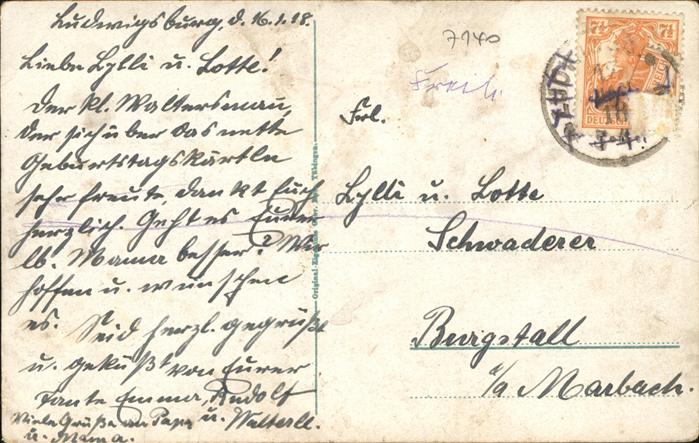 Ludwigsburg, d. 16.1.18.
Liebe Lylli u. Lotte!
Der kl. Waltersmau,
der sich über das nette
Geburtstagskärtle
sehr freute, dankt Euch
herzlich. Geht es Eurer
lb. Mama besser? Wir
hoffen u. wünschen
es. Seid herzl. gegrüßt
u. geküßt von Eurer
Tante Emma, Rudolf
u. Walterle.
Viele Grüße an Papa
u. Mama.
7140
Frech.
7½ 7½
DEUTSCHES REICH
Frl.
Lylli u. Lotte
Schwaderer
Burgstall
a/a Marbach.
Original-Eigentum Gebr. Metz Tübingen